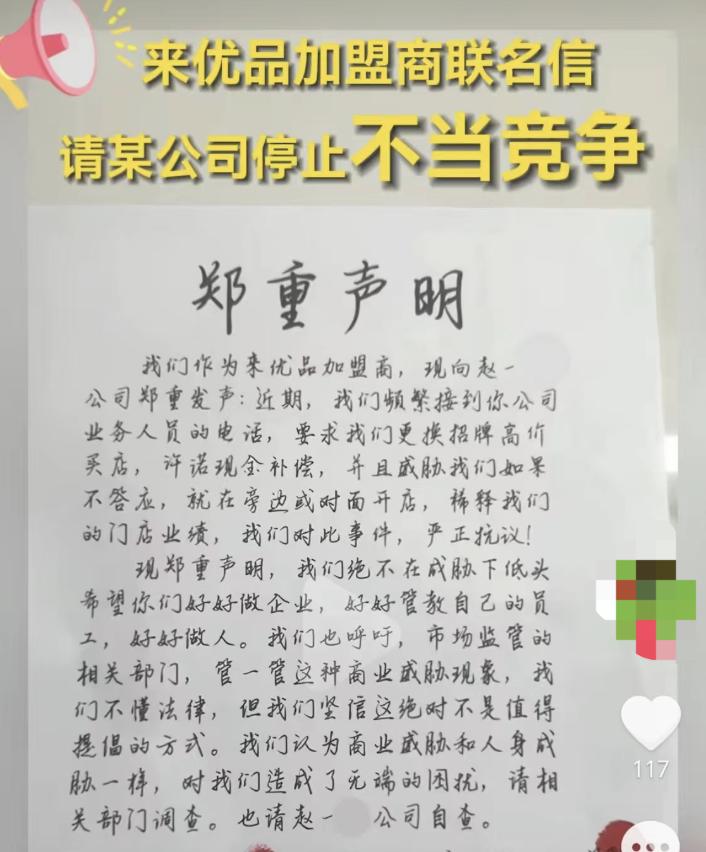 来优品加盟商联名信
请某公司停止不当竞争
郑重声明
我们作为来优品加盟商，现向赵一
公司郑重发声：近期，我们频繁接到你公司
业务人员的电话，要求我们更换招牌高价
买店，许诺现金补偿，并且威胁我们如果
不答应，就在旁边或对面开店，稀释我们
的门店业绩，我们对此事件，严正抗议！
现郑重声明，我们绝不在威胁下低头
希望你们好好做企业，好好管教自己的员
工，好好做人。我们也呼吁，市场监管的
相关部门，管一管这种商业威胁现象，我
们不懂法律，但我们坚信这绝对不是值得
提倡的方式。我们认为商业威胁和人身威
胁一样，对我们造成了无端的困扰，请相
关部门调查。也请赵一 公司自查。
117